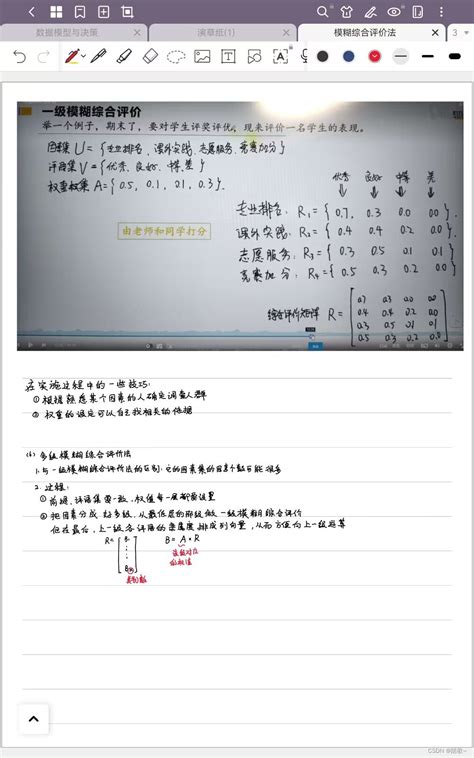 数据模型与决策
演草纸(1)
模糊综合评价法
3
一级模糊综合评价
举一个例子，期末了，要对学生评奖评优，现来评价一名学生的表现。
因素集 U = {专业排名、课外实践、志愿服务、竞赛加分}
评语集 V = {优秀、良好、中等、差}
权重集 A = {0.5, 0.1, 0.1, 0.3}.
优秀 良好 中等 差
由老师和同学打分
专业排名: R₁ = {0.7, 0.3 0.0 0.0}.
课外实践: R₂ = {0.4 0.4 0.2 0.0}.
志愿服务: R₃ = {0.3 0.5 0.1 0.1}
竞赛加分: R₄ = {0.5 0.3 0.2 0.0}
综合评价矩阵 R =
0.7 0.3 0.0 0.0
0.4 0.4 0.2 0.0
0.3 0.5 0.1 0.1
0.5 0.3 0.2 0.0
在实施过程中的一些技巧:
① 根据熟悉某个因素的人确定调查人群
② 权重的设定可以自主找相关的依据
(6) 多级模糊综合评价法
1. 与一级模糊综合评价法的区别: 它的因素集的因素个数可能很多
2. 过程:
① 前提、评语集要一致, 权值每一层都需设置
② 把因素分成好多级, 从最低层的那级做一级模糊综合评价
但在最后, 上一级各评语的隶属度排成列向量, 从而方便向上一级运算
R = B₁
B = A • R
该级对应
的权值
CSDN